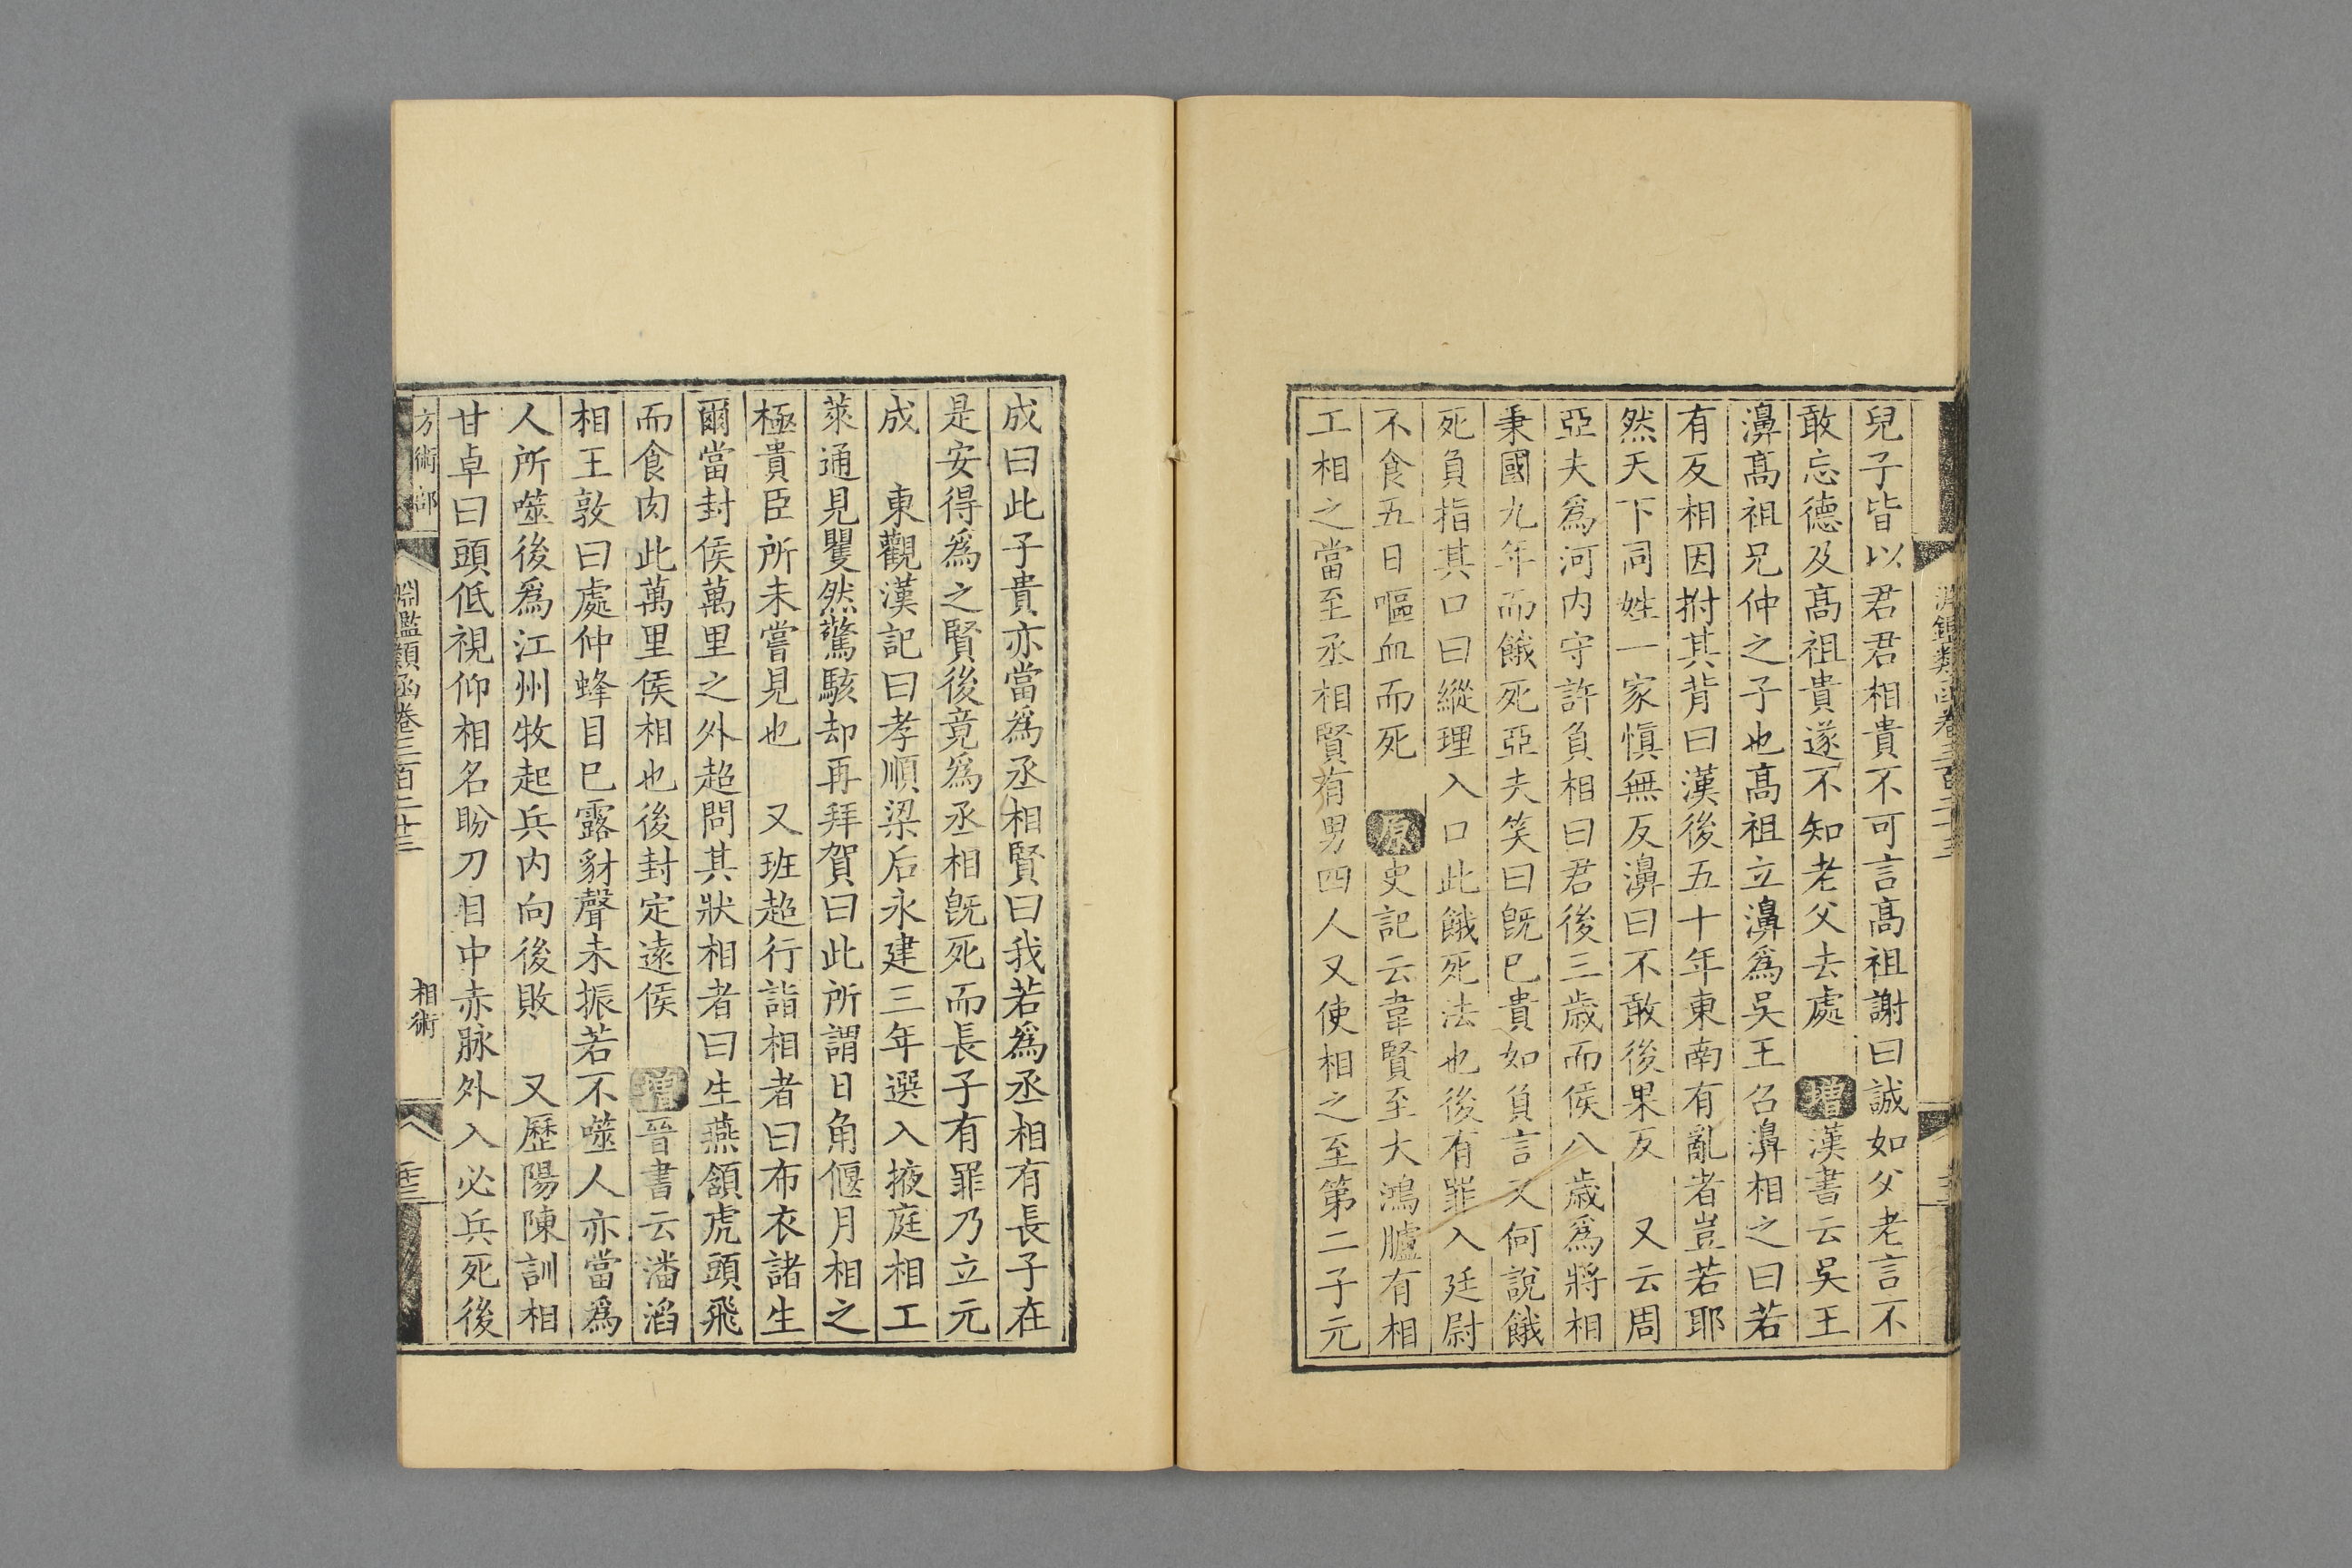 兒子皆以君君相貴不可言髙祖謝曰誠如父老言不
敢忘德及髙祖貴遂不知老父去處　增漢書云吳王
濞髙祖兄仲之子也髙祖立濞爲吳王召濞相之曰若
有反相因拊其背曰漢後五十年東南有亂者豈若耶
然天下同姓一家愼無反濞曰不敢後果反　又云周
亞夫爲河内守許負相曰君後三歲而侯八歲爲將相
秉國九年而餓死亞夫笑曰旣巳貴如負言又何說餓
死負指其口曰縱理入口此餓死法也後有罪入廷尉
不食五日嘔血而死　原史記云韋賢至大鴻臚有相
工相之當至丞相賢有男四人又使相之至第二子元
成曰此子貴亦當爲丞相賢曰我若爲丞相有長子在
是安得爲之賢後竟爲丞相旣死而長子有罪乃立元
成　東觀漢記曰孝順梁后永建三年選入掖庭相工
萊通見矍然驚駭却再拜賀曰此所謂日角偃月相之
極貴臣所未嘗見也　又班超行詣相者曰布衣諸生
爾當封侯萬里之外超問其狀相者曰生燕頷虎頭飛
而食肉此萬里侯相也後封定遠侯　增晉書云潘滔
相王敦曰處仲蜂目巳露豺聲未振若不噬人亦當爲
人所噬後爲江州牧起兵内向後敗　又歷陽陳訓相
甘卓曰頭低視仰相名盼刀目中赤脉外入必兵死後
方術部
淵鑑類函卷三百二十三
相術